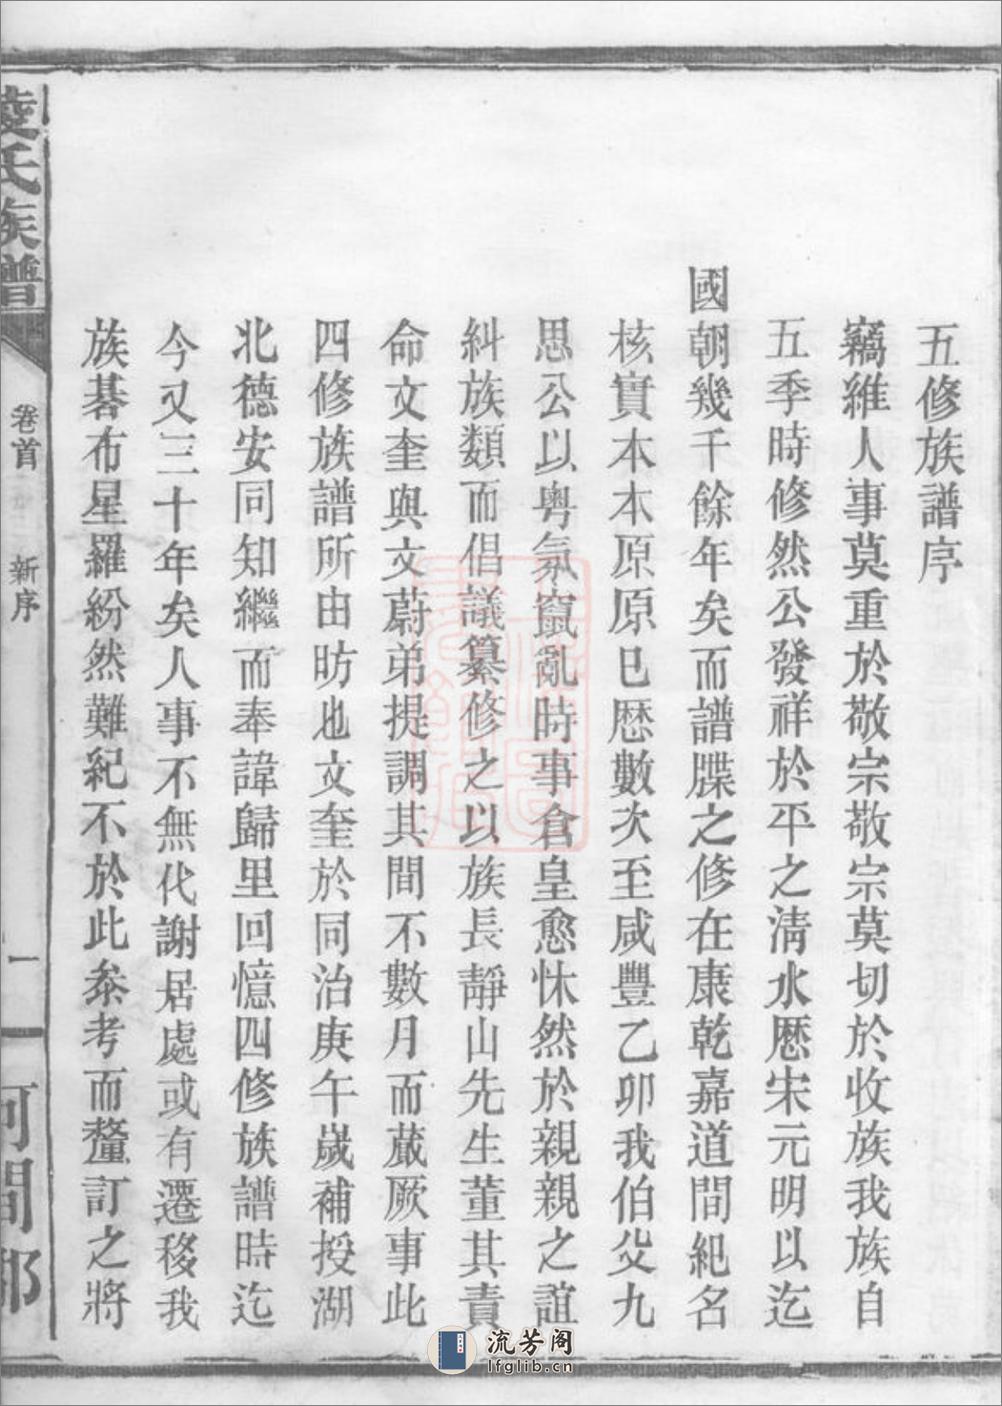 五修族譜序
竊維人事莫重於敬宗敬宗莫切於收族我族自
五季時修然公發祥於平之清水歷宋元明以迄
國朝幾千餘年矣而譜牒之修在康乾嘉道間紀名
核實本本原原已歷數次至咸豐乙卯我伯父九
思公以粤氛竄亂時事倉皇愈怵然於親親之誼
糾族類而倡議纂修之以族長靜山先生董其責
命文奎與文蔚弟提調其間不數月而蕆厥事此
四修族譜所由昉也文奎於同治庚午歲補授湖
北德安同知繼而奉諱歸里回憶四修族譜時迄
今又三十年矣人事不無代謝居處或有遷移我
族碁布星羅紛然難紀不於此叅考而釐訂之將
凌氏族譜
卷首
新序
一
河間郡
流芳阁
lfglib.cn